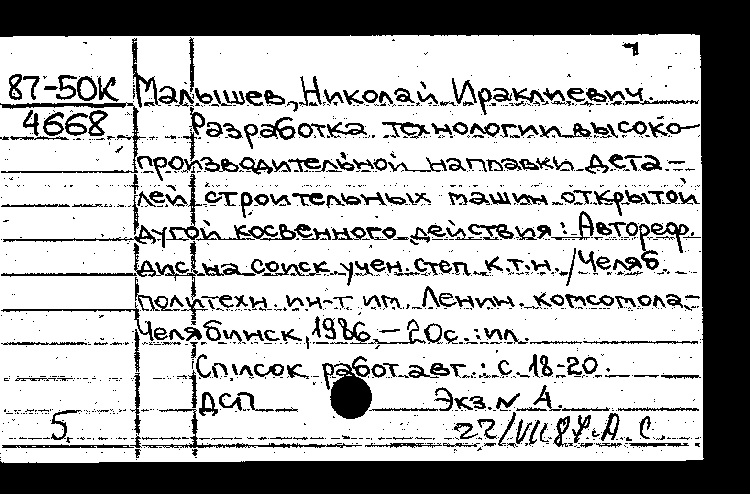 87-50К Малышев, Николай Ираклиевич.
4668 Разработка технологии высоко-
производительной наплавки дета-
лей строительных машин открытой
дугой косвенного действия: Автореф.
дис. на соиск. учен. степ. к.т.н. / Челяб.
политехн. ин-т им. Ленин. комсомола-
Челябинск, 1986.-20с.:ил.
Список работ авт.: с. 18-20.
ДСП Экз.N А.
5 22/VII 87. А. С.